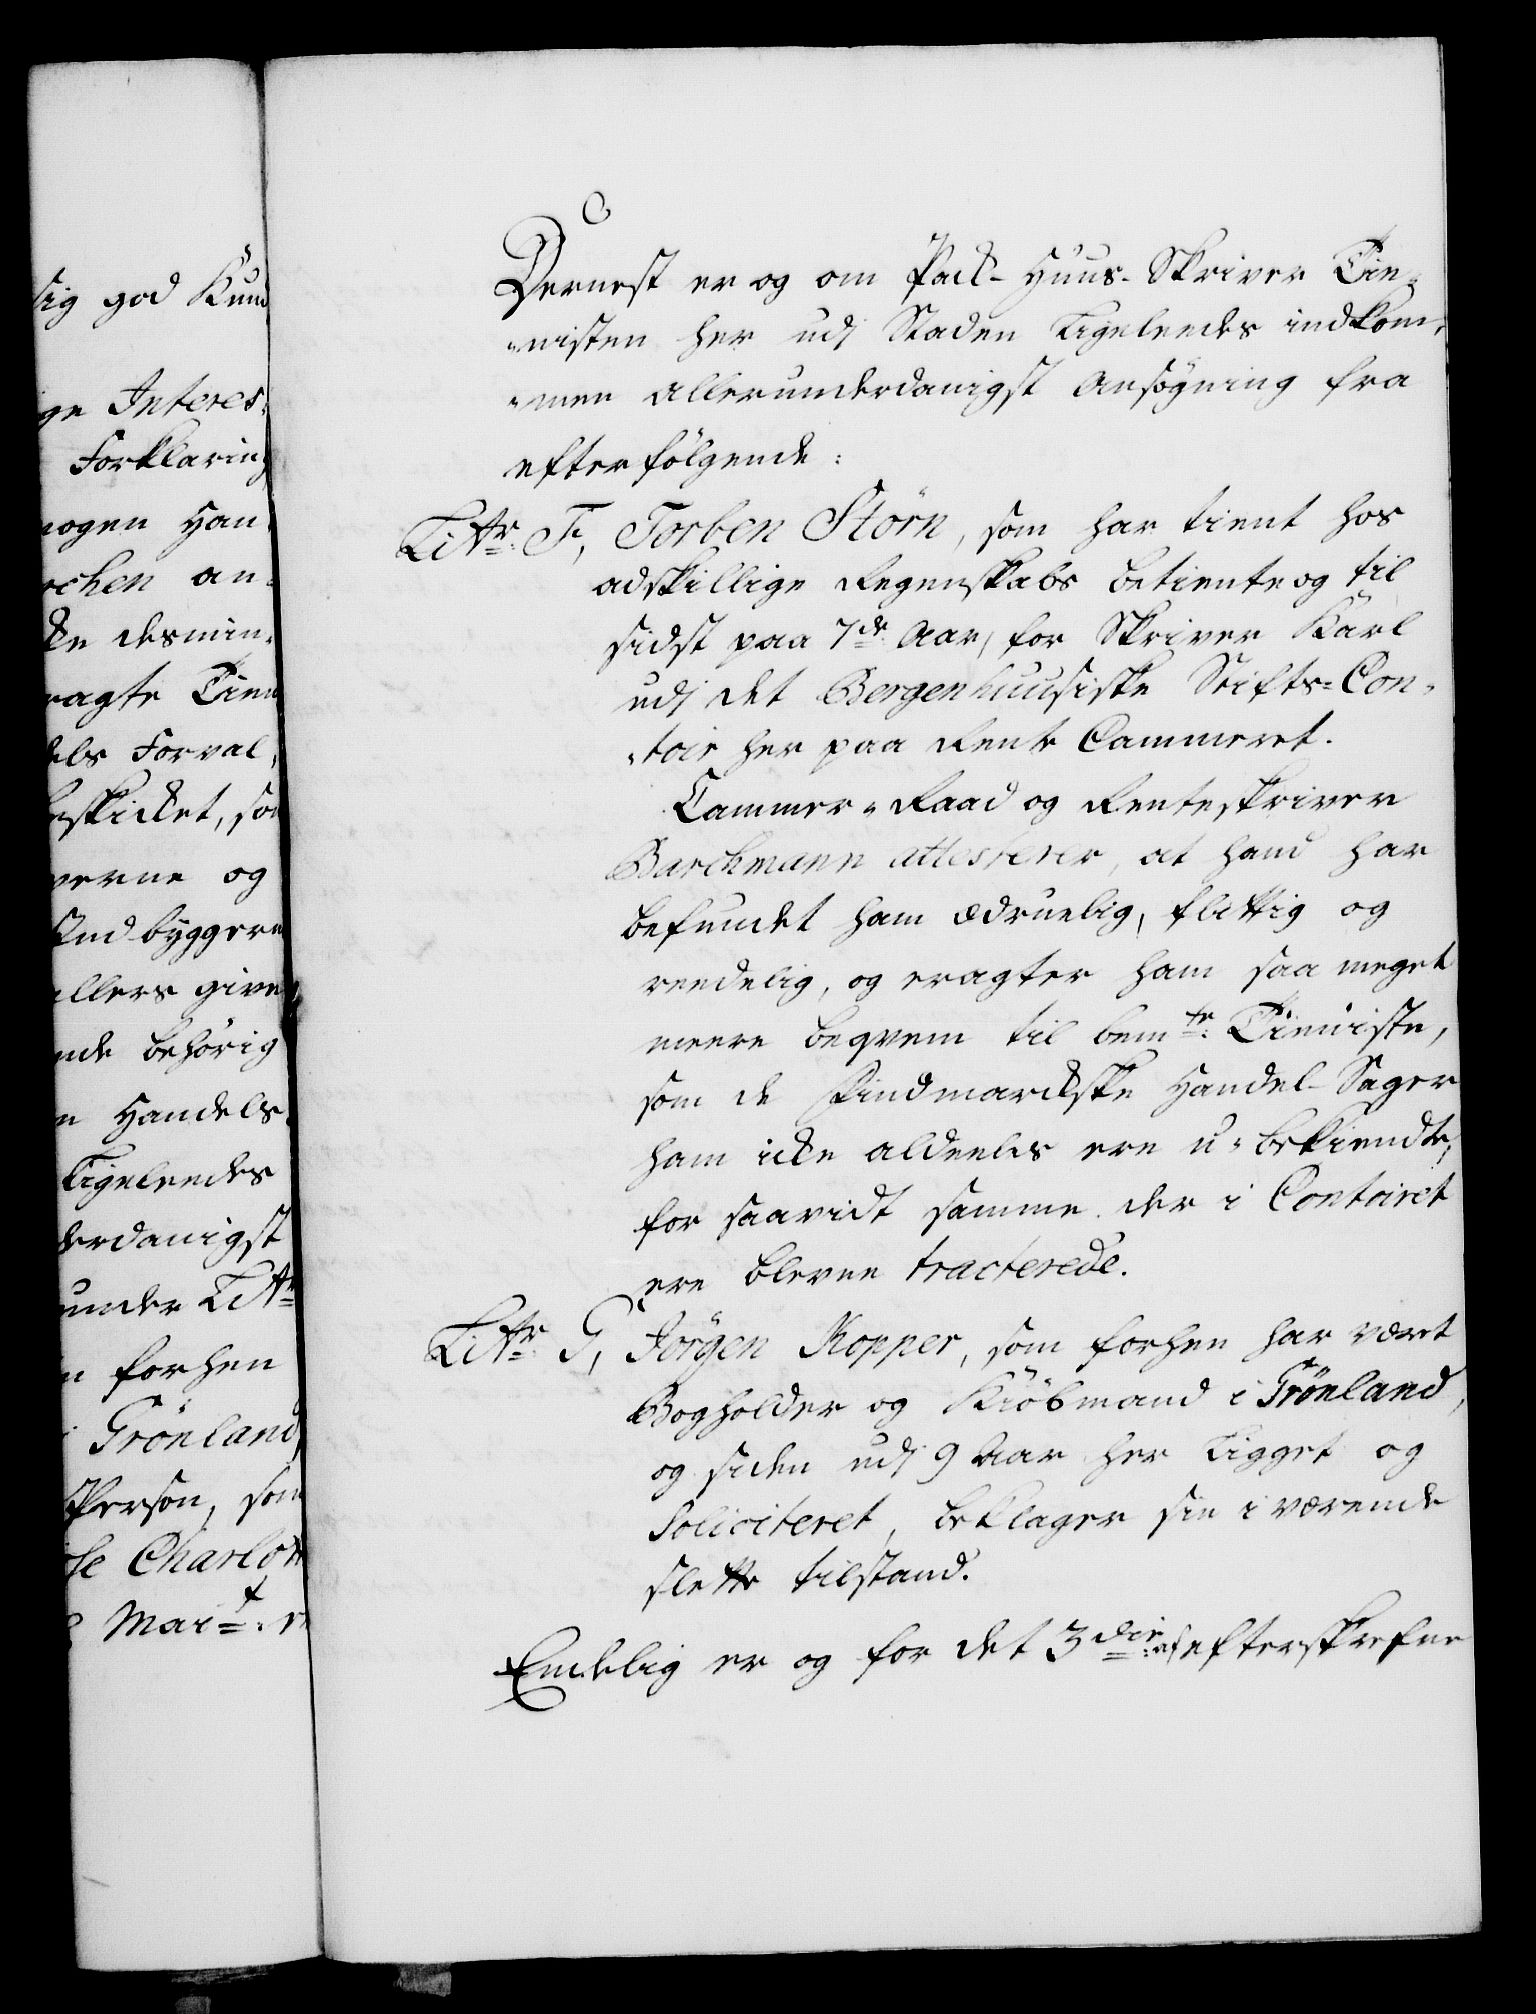 sig god Kund
ge Interes-
Forklaring
nogen Han-
chen an-
cke desmin-
ragte Tien
dels Forval-
eskicket, som
verne og
Ind-byggere
ellers give
nde behörig
n Handels
Ligeleedes
derdanigst
under Littr
n forhen
i Grönland,
Person, som
se Charlott
Mait:
Dernest er og om Pack-Huus-Skriver Tie-
-nisten her udj Staden Ligeleedes indkom-
-men allerunderdanigst Ansögning fra
efterfölgende:
Littr: F, Torben Störn, som har tient hos
adskillige Regenskabs betiente og til
sidst paa 7de Aar, for Skriver Karl
udj det Bergenhuusiske Stifts-Con-
-toir her paa Rente Cammeret.
Cammer-Raad og Renteskriver
Barchmann attesterer, at hand har
befundet ham ædruelig, flittig og
reedelig, og eragter ham saa meget
meere beqvem til bemte: Tieniste,
som de Findmarckske Handel-Sager
ham icke aldeeles ere u-bekiendte,
for saavidt samme der i Contoiret
ere blevne tracterede.
Littr: G, Jörgen Kopper, som forhen har været
Bogholder og Kiöbmand i Grönland,
og siden udj 9 Aar her Ligget og
Soliciteret, beklager sin i værende
slette tilstand.
Endelig er og for det 3die: af efterskrefne